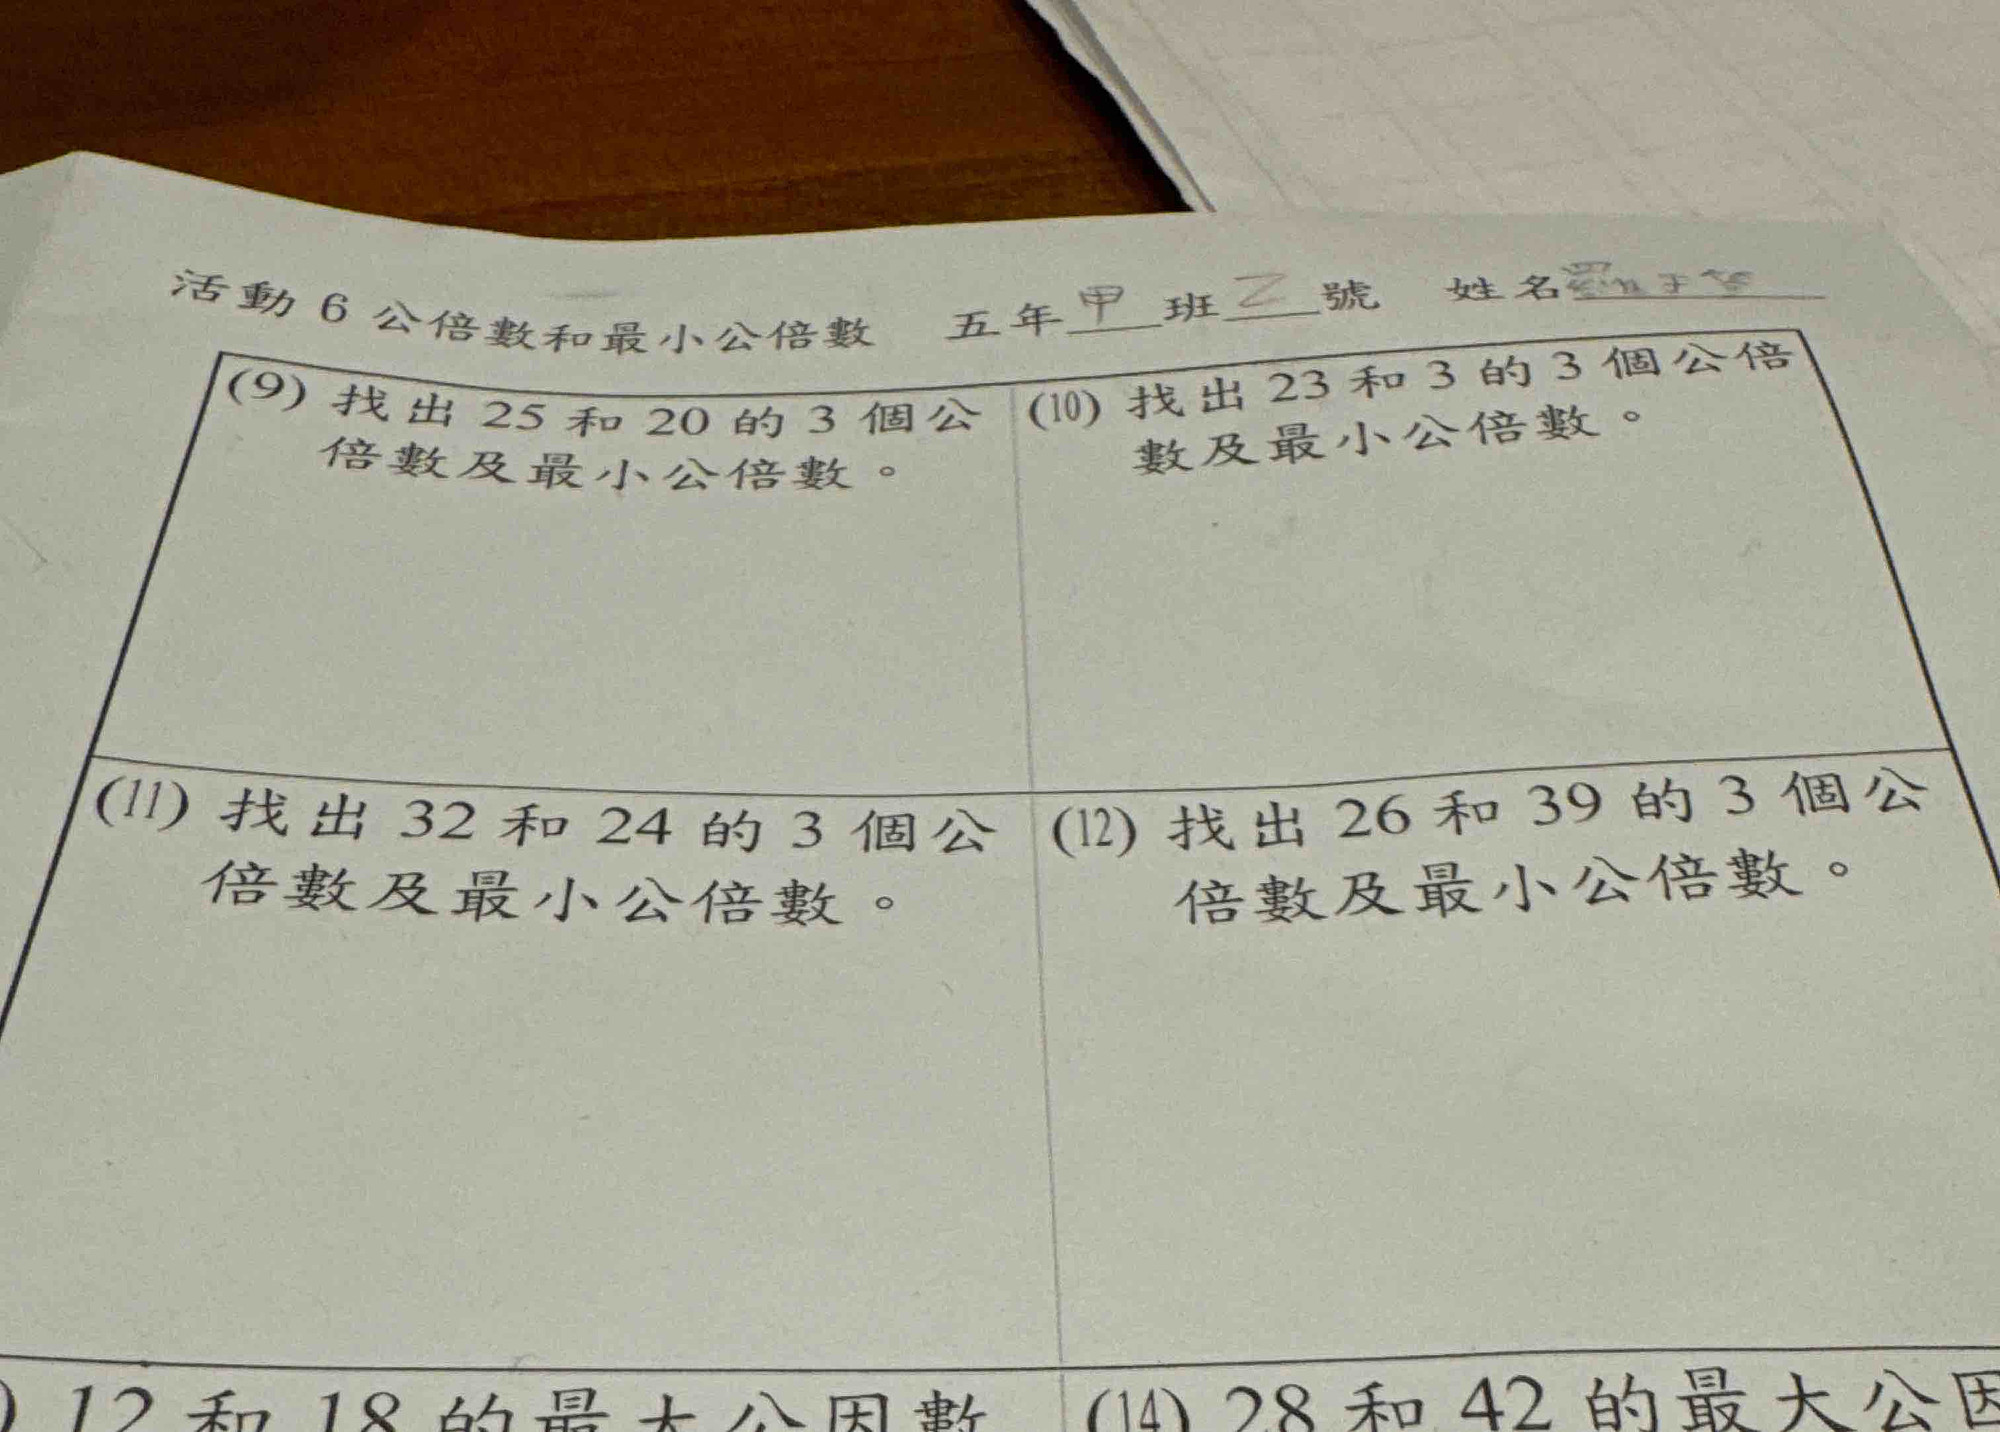 活動 6 公倍數和最小公倍數 五年甲班2號 姓名
(9) 找出 25 和 20 的 3 個公
倍數及最小公倍數。
(10) 找出 23 和 3 的 3 個公倍
數及最小公倍數。
(11) 找出 32 和 24 的 3 個公
倍數及最小公倍數。
(12) 找出 26 和 39 的 3 個公
倍數及最小公倍數。
) 12 和 18 的最大公因數
(14) 28 和 42 的最大公因